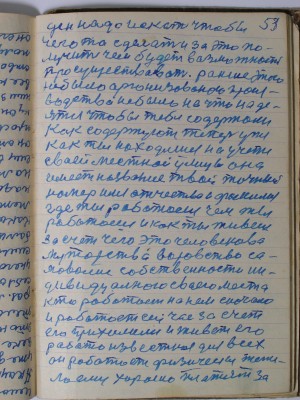 53
ден надо искать чтобы
чего то сделать и за это по-
лучить чем будет возможность
просуществовать. раньше этого
небыло организованого произ-
водства небыло на что наде-
ятся чтобы тебя содержали
Как содержут теперь уже
как ты находишся на учети
своей местной улицы она
имеет название твой точный
номер имя отчество и фамилия
где ты работаеш чем ты
работаеш и как ты живеш
за счёт чего это человекова
мытарства воровство са-
мовольне собственность ин-
дивидуального своего места
кто работает на нем сначала
и работает сей час за счет
его прихожели и живет его
работа известная для всех
он работает физически
ему хорошо платят за